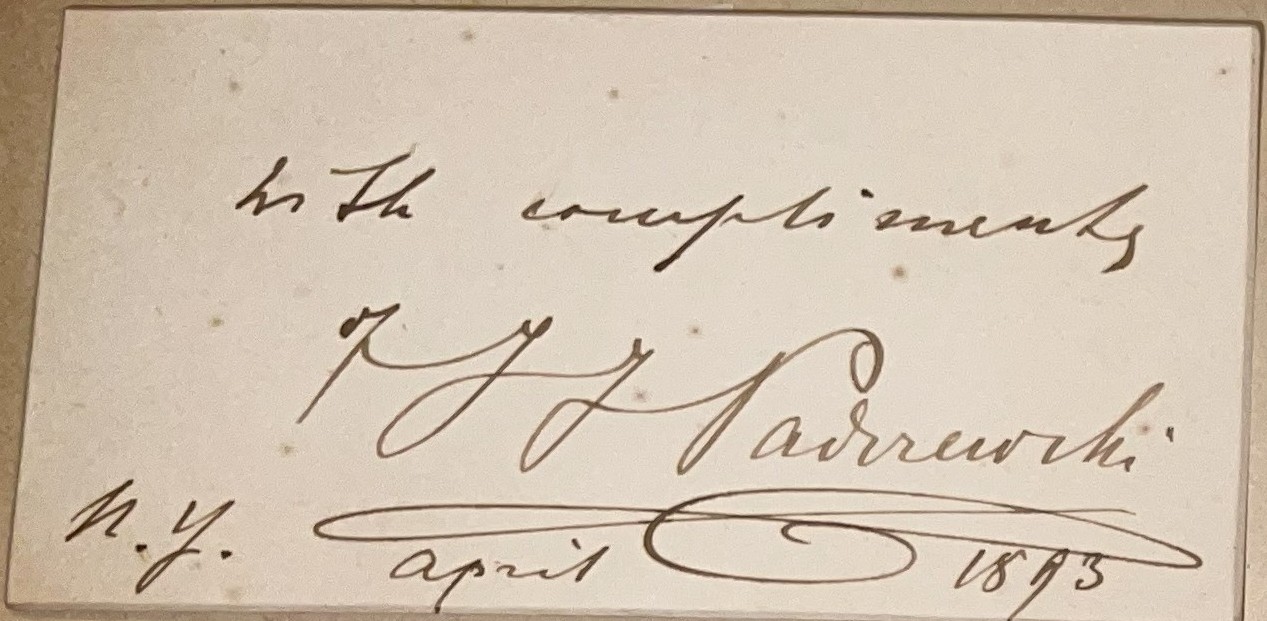 with compliments
I J J Paderewski
N.Y. April 1893